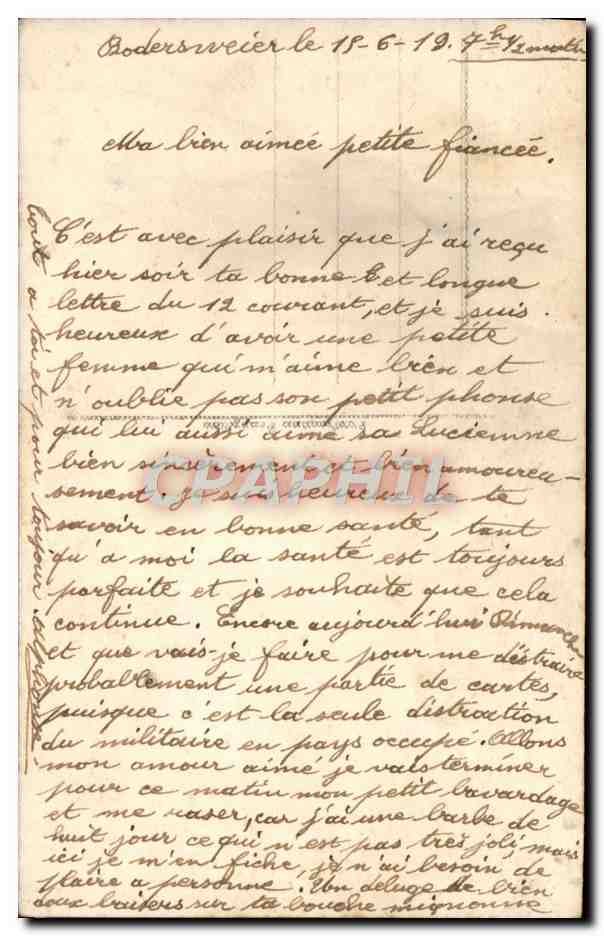 Bodersweier le 15-6-19. 7h 1/2 matin
Ma bien aimeé petite fianceé.
C'est avec plaisir que j'ai reçu
hier soir ta bonne et longue
lettre du 12 courant, et je suis
heureux d'avoir une petite
femme qui m'aime bien et
n'oublie pas son petit phonse
qui lui aussi aime sa Lucienne
bien sincèrement et bien amoureu-
sement. Je suis heureux de te
savoir en bonne santé, tant
qu'a moi la santé est toujours
parfaite et je souhaite que cela
continue. Encore aujourd'hui Dimanche
et que vais-je faire pour me distraire
probablement une partie de cartes,
puisque c'est la seule distraction
du militaire en pays occupé. Allons
mon amour aimé je vais terminer
pour ce matin mon petit bavardage
et me raser, car j'ai une barbe de
huit jour ce qui n'est pas très joli, mais
ici je m'en fiche, je n'ai besoin de
plaire a personne. Un déluge de bien
doux baisers sur ta bouche mignonne
tout a toi et pour toujour. Alphonse
CPAPHIL